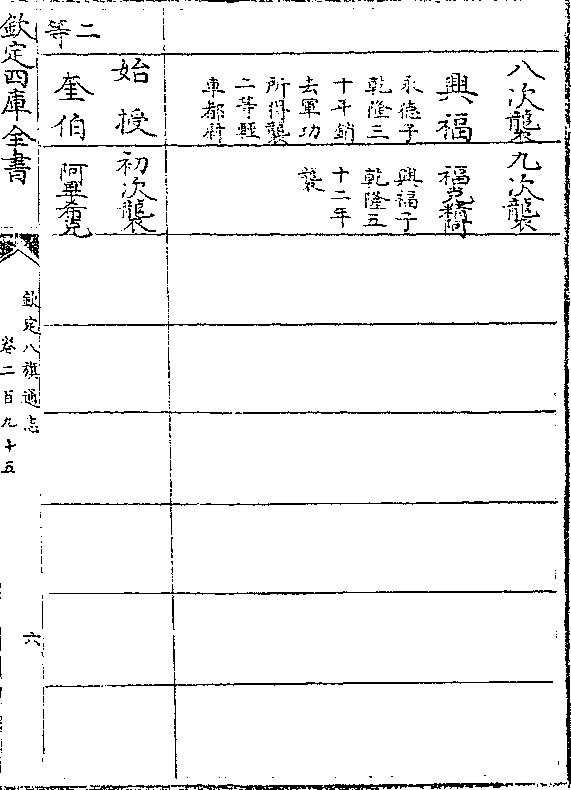 八次襲
興福
永德子
乾隆三
十年銷
去軍功
所得襲
二等輕
車都尉
九次襲
福克精阿
興福子
乾隆五
十二年
襲
二等
始授
奎伯
初次襲
阿畢
欽定四庫全書
欽定八旗通志
卷二百九十五
六